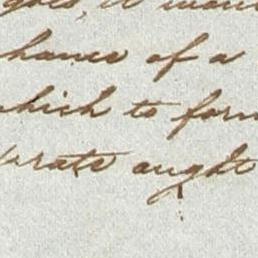 it would
chance of a
which to form
orate aught